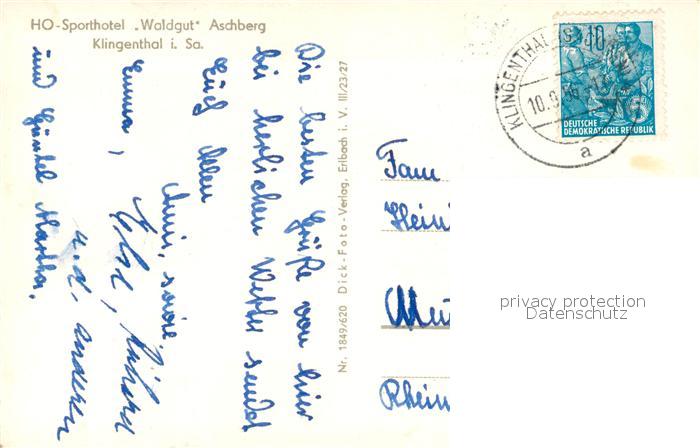 HO-Sporthotel „Waldgut" Aschberg
Klingenthal i. Sa.
Die besten Grüße von hier
bei herrlichen Wetter sendet
Euch Allen
Anni, sowie
Emma,
u. d. anderen
Nr. 1849/620 Dick-Foto-Verlag, Erlbach i. V. III/23/27
KLINGENTHAL
10.9.
a
10
DEUTSCHE
DEMOKRATISCHE REPUBLIK
Fam
Hein
Rhein
privacy protection
Datenschutz